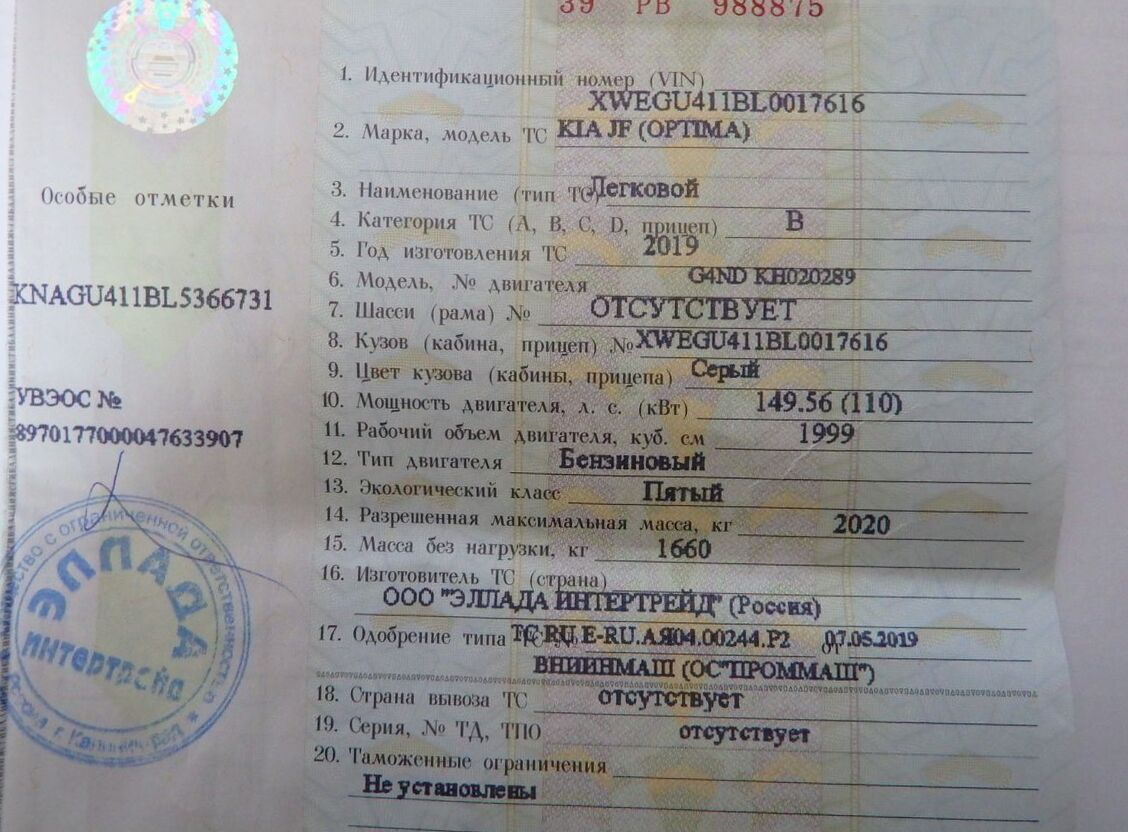 39 РВ 988875
1. Идентификационный номер (VIN)
XWEGU411BL0017616
2. Марка, модель ТС KIA JF (OPTIMA)
3. Наименование (тип ТС) Легковой
4. Категория ТС (А, В, С, D, прицеп) В
5. Год изготовления ТС 2019
6. Модель, № двигателя G4ND KH020289
7. Шасси (рама) № ОТСУТСТВУЕТ
8. Кузов (кабина, прицеп) № XWEGU411BL0017616
9. Цвет кузова (кабины, прицепа) Серый
10. Мощность двигателя, л. с. (кВт) 149.56 (110)
11. Рабочий объем двигателя, куб. см 1999
12. Тип двигателя Бензиновый
13. Экологический класс Пятый
14. Разрешенная максимальная масса, кг 2020
15. Масса без нагрузки, кг 1660
16. Изготовитель ТС (страна)
ООО "ЭЛЛАДА ИНТЕРТРЕЙД" (Россия)
17. Одобрение типа ТС № ТС RU E-RU.АЯ04.00244.Р2 07.05.2019
ВНИИНМАШ (ОС"ПРОММАШ")
18. Страна вывоза ТС отсутствует
19. Серия, № ТД, ТПО отсутствует
20. Таможенные ограничения
Не установлены
Особые отметки
KNAGU411BL5366731
УВЭОС №
8970177000047633907
общество с ограниченной ответственностью
ЭЛЛАДА
ИНТЕРТРЕЙД